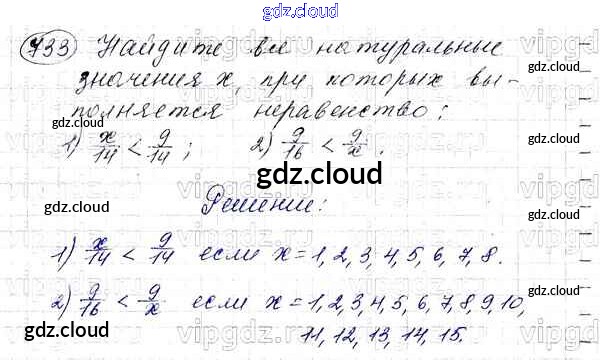 gdz.cloud
733 Найдите все натуральные
значения x, при которых вы-
полняется неравенство:
1) x/14 < 9/14; 2) 9/16 < 9/x.
Решение:
1) x/14 < 9/14 если x = 1, 2, 3, 4, 5, 6, 7, 8.
2) 9/16 < 9/x если x = 1, 2, 3, 4, 5, 6, 7, 8, 9, 10,
11, 12, 13, 14, 15.
gdz.cloud
gdz.cloud
gdz.cloud
gdz.cloud
gdz.cloud
gdz.cloud
gdz.cloud
gdz.cloud
gdz.cloud